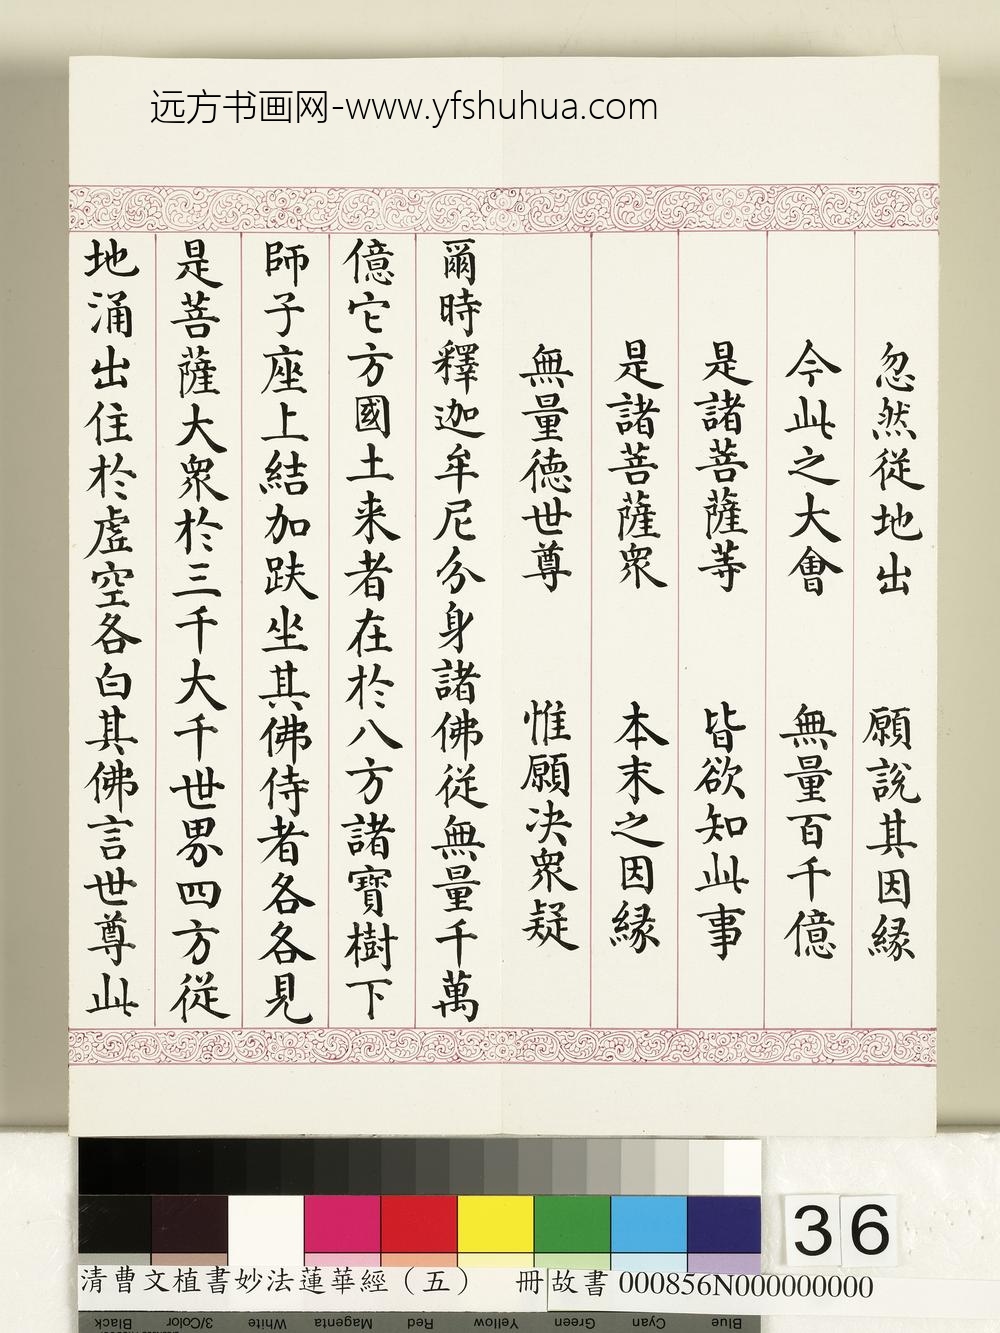 远方书画网-www.yfshuhua.com
忽然從地出 願說其因縁
今此之大會 無量百千億
是諸菩薩等 皆欲知此事
是諸菩薩衆 本末之因縁
無量徳世尊 惟願决衆疑
爾時釋迦牟尼分身諸佛從無量千萬
億它方國土来者在於八方諸寶樹下
師子座上結加趺坐其佛侍者各各見
是菩薩大衆於三千大千世界四方從
地涌出住於虚空各白其佛言世尊此
36
清曹文植書妙法蓮華經（五） 冊 故書 000856N000000000
Black 3/Color White Magenta Red Yellow Green Cyan Blue